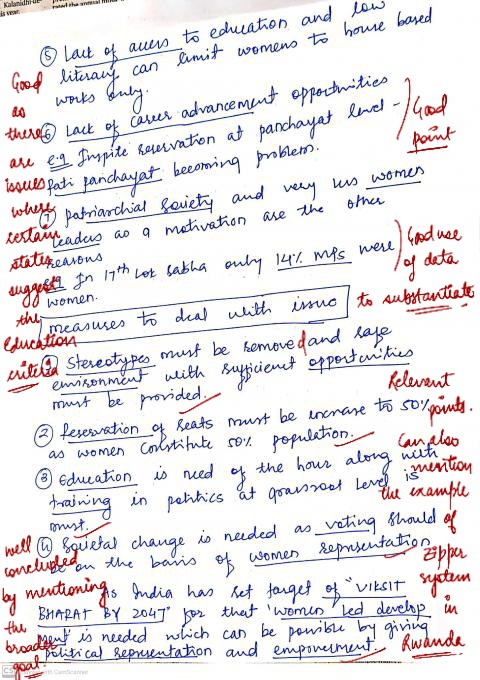 Kalanidhi
is year.
⑤ Lack of access to education and low
literacy can limit womens to house based
works only.
⑥ Lack of career advancement opportunities
e.g Inspite reservation at panchayat level -
pati panchayat becoming problem.
⑦ patriarchial society and very less women
leaders as a motivation are the other
reasons
e.g In 17th Lok Sabha only 14% MPs were
women.
measures to deal with issue
① Stereotypes must be removed and safe
environment with sufficient opportunities
must be provided.
② Reservation of seats must be increase to 50%
as women constitute 50% population.
③ Education is need of the hour along with
training in politics at grassroot level is
must.
④ Societal change is needed as voting should
be on the basis of women representation
As India has set target of "VIKSIT
BHARAT BY 2047" for that 'women led develop
ment' is needed which can be possible by giving
political representation and empowerment.
Good
as
there
are
issues
where
certain
states
suggest
the
Education
criteria
Good
point
Good use
of data
to substantiate
Relevent
points.
Can also
mention
the example
of
zipper
system
in
Rwanda
well
concluded
by mentioning
the
broader
goal.
CS CamScanner